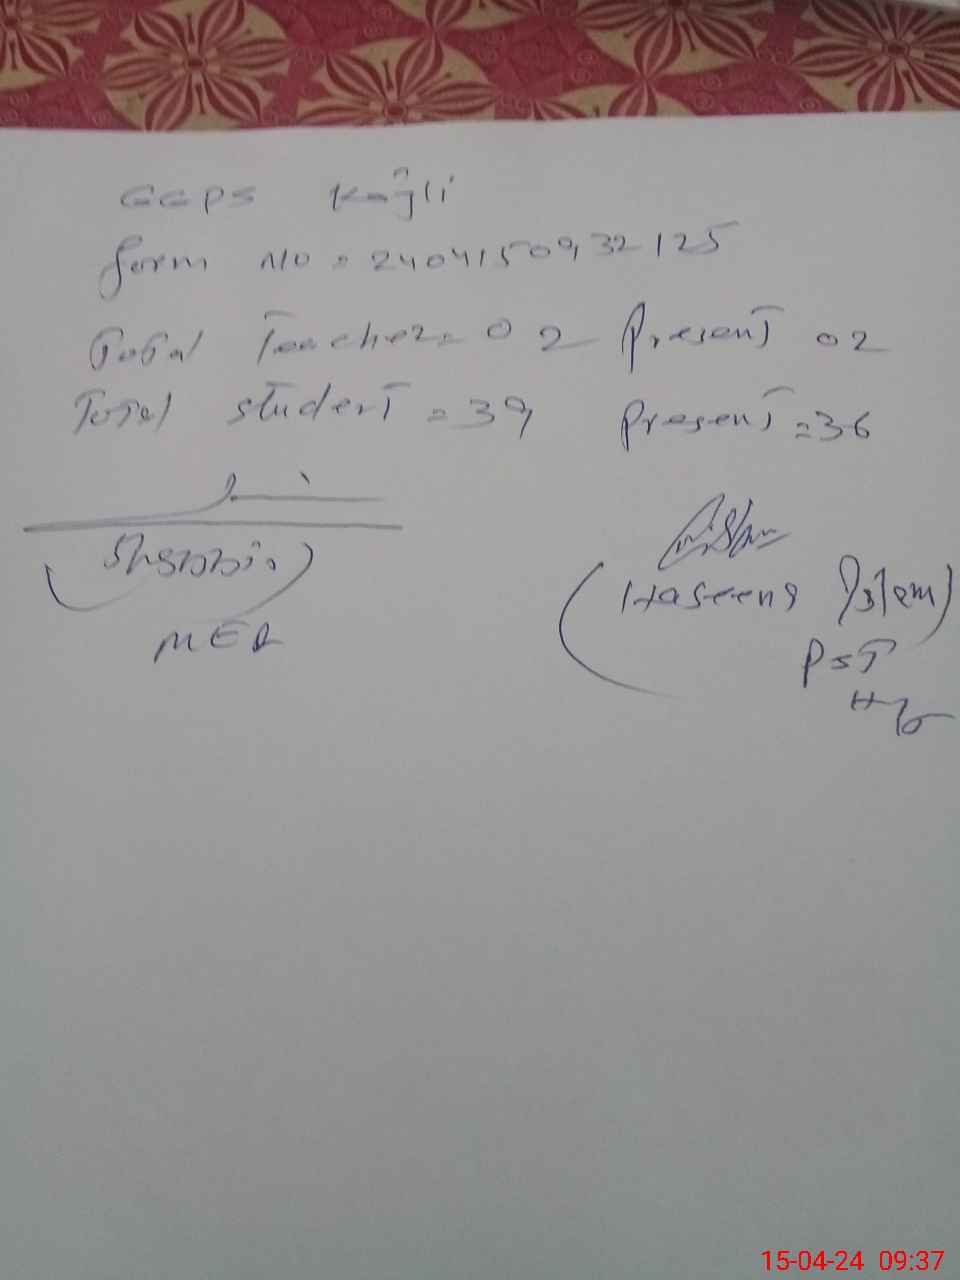 GGPS Kagli
form NO = 24041509 32125
Total Teacher = 02 Present 02
Total student = 39 Present = 36
Haseena Islam
PST
15-04-24 09:37